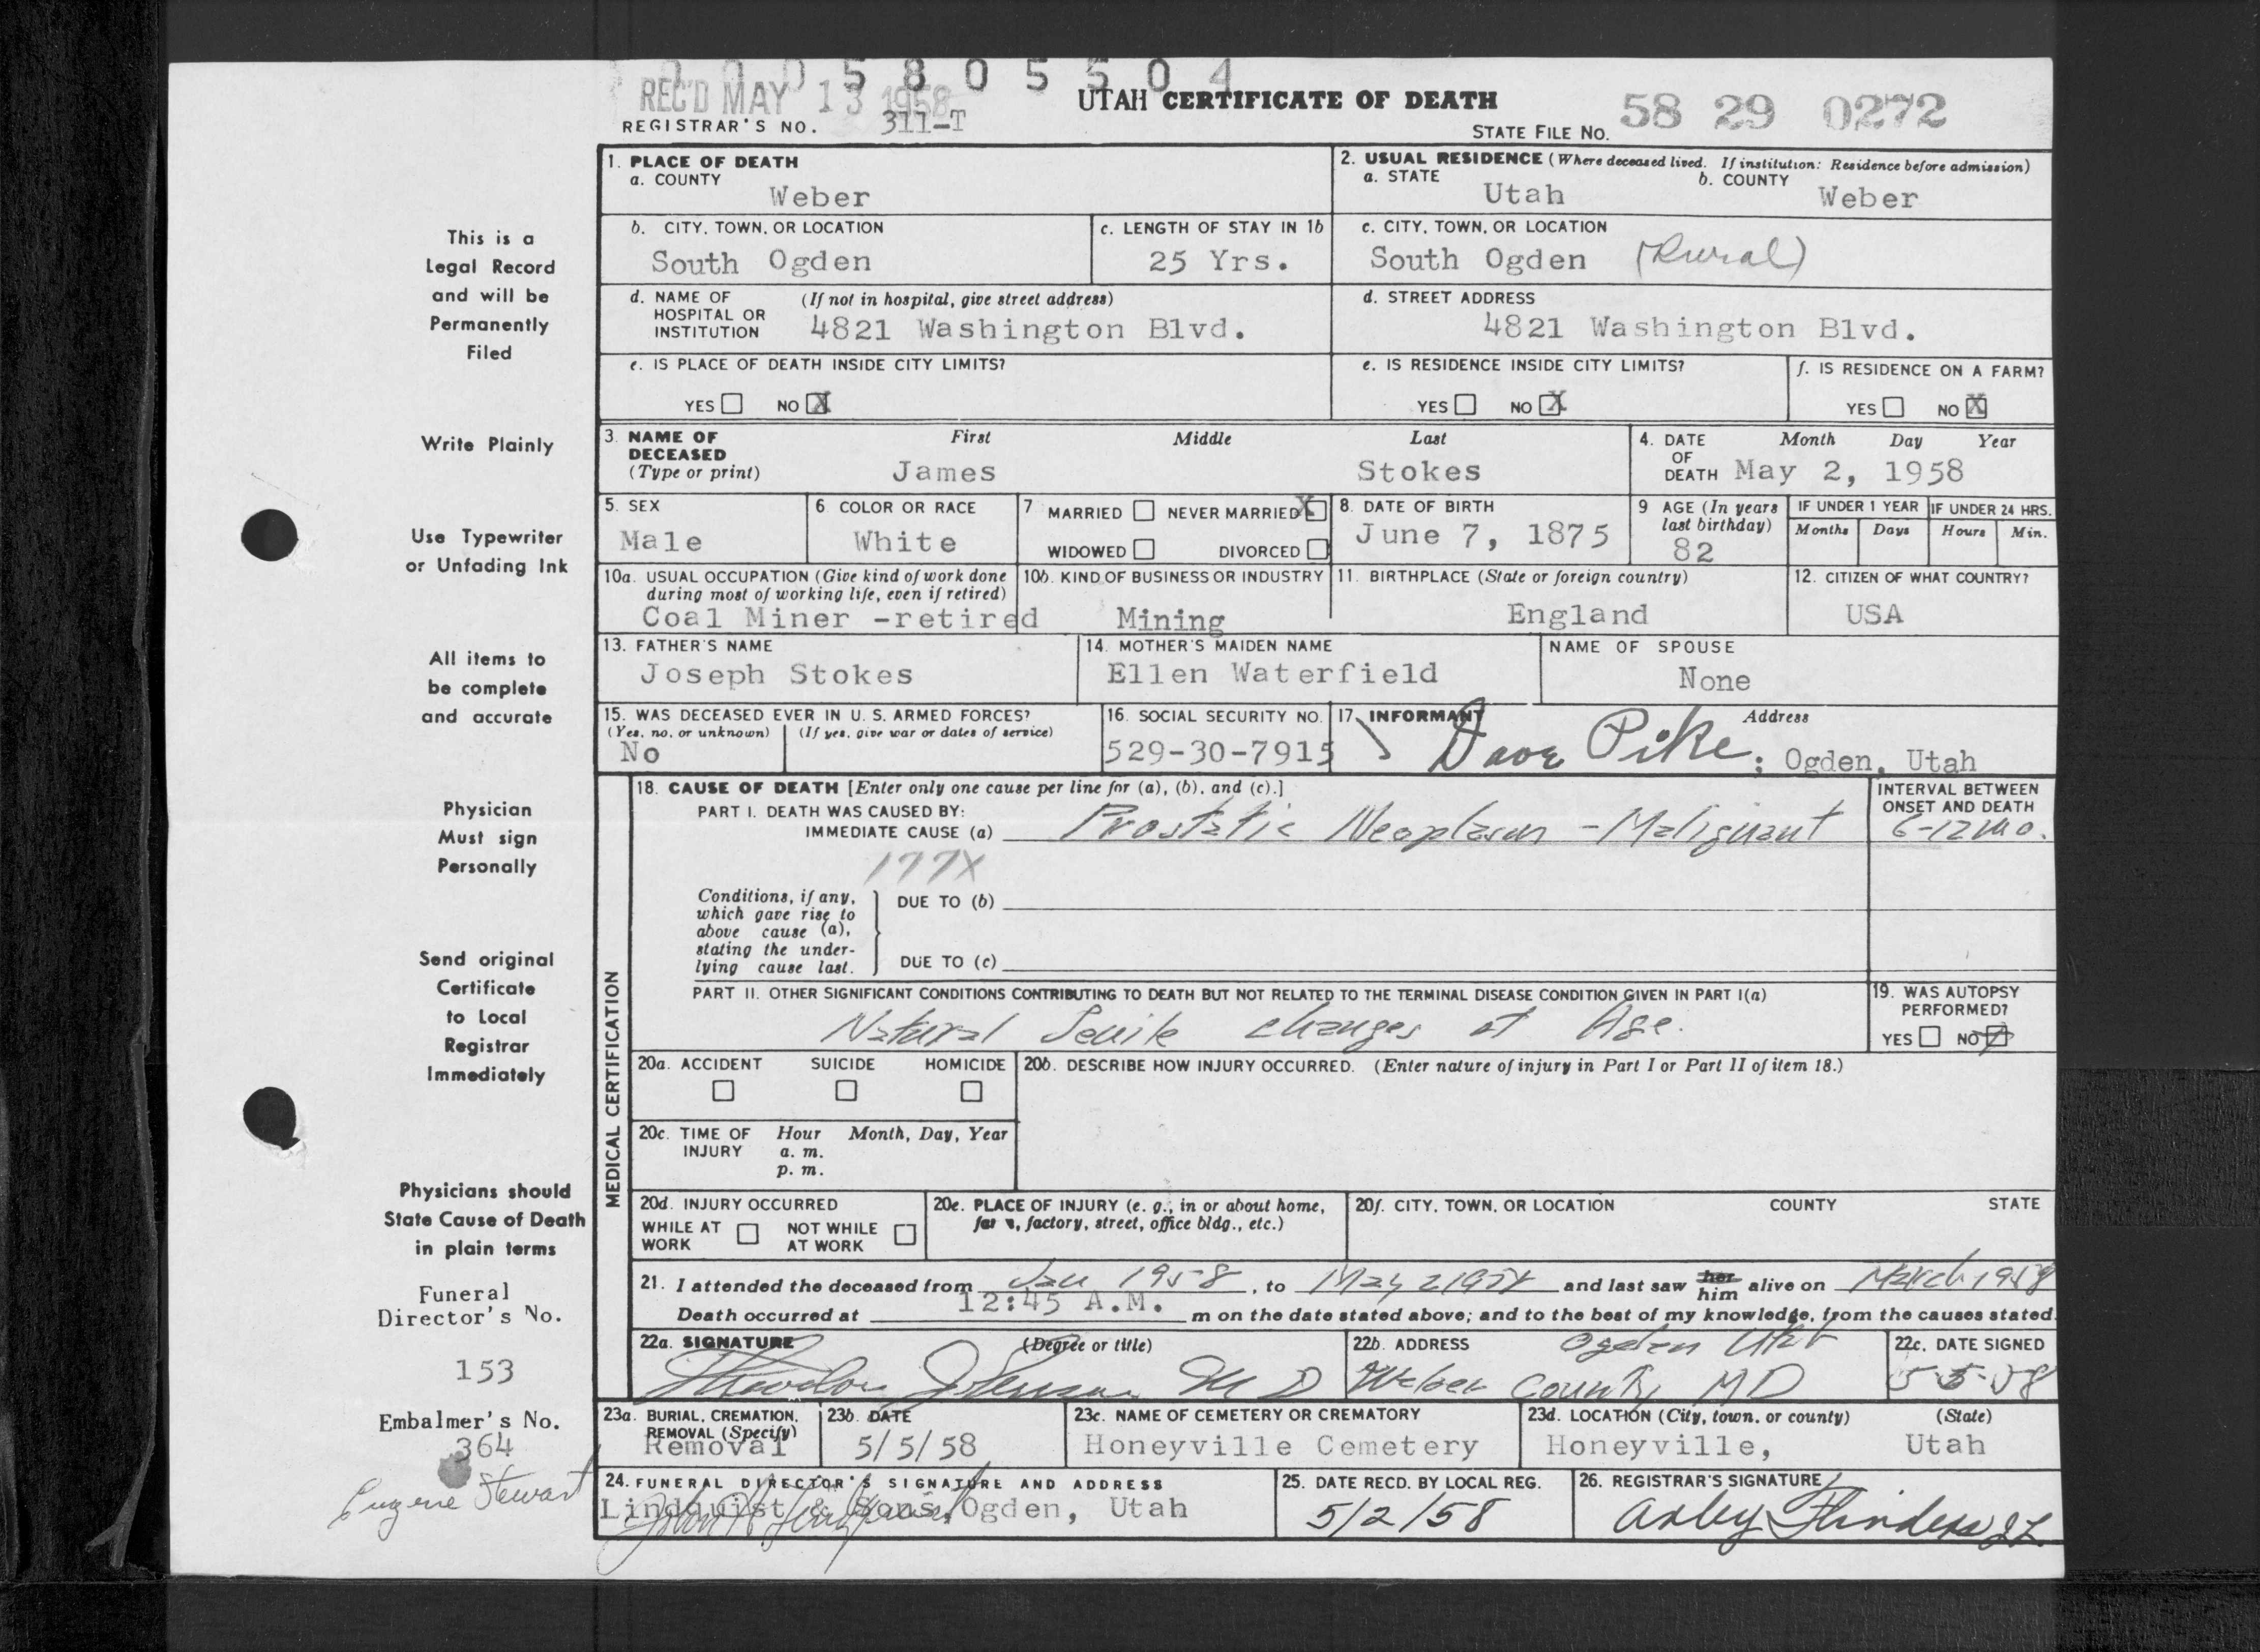 0 0 0 5 8 0 5 5 0 4
REC'D MAY 13 1958
UTAH CERTIFICATE OF DEATH
REGISTRAR'S NO. 311-T
STATE FILE NO. 58 29 0272
1. PLACE OF DEATH
a. COUNTY
Weber
2. USUAL RESIDENCE (Where deceased lived. If institution: Residence before admission)
a. STATE Utah b. COUNTY Weber
b. CITY, TOWN, OR LOCATION
South Ogden
c. LENGTH OF STAY IN 1b
25 Yrs.
c. CITY, TOWN, OR LOCATION
South Ogden (Rural)
d. NAME OF HOSPITAL OR INSTITUTION (If not in hospital, give street address)
4821 Washington Blvd.
d. STREET ADDRESS
4821 Washington Blvd.
e. IS PLACE OF DEATH INSIDE CITY LIMITS?
YES NO X
e. IS RESIDENCE INSIDE CITY LIMITS?
YES NO X
f. IS RESIDENCE ON A FARM?
YES NO X
3. NAME OF DECEASED (Type or print)
First Middle Last
James Stokes
4. DATE OF DEATH Month Day Year
May 2, 1958
5. SEX
Male
6. COLOR OR RACE
White
7 MARRIED NEVER MARRIED X
WIDOWED DIVORCED
8. DATE OF BIRTH
June 7, 1875
9 AGE (In years last birthday)
82
IF UNDER 1 YEAR
Months Days
IF UNDER 24 HRS.
Hours Min.
10a. USUAL OCCUPATION (Give kind of work done during most of working life, even if retired)
Coal Miner -retired
10b. KIND OF BUSINESS OR INDUSTRY
Mining
11. BIRTHPLACE (State or foreign country)
England
12. CITIZEN OF WHAT COUNTRY?
USA
13. FATHER'S NAME
Joseph Stokes
14. MOTHER'S MAIDEN NAME
Ellen Waterfield
NAME OF SPOUSE
None
15. WAS DECEASED EVER IN U. S. ARMED FORCES?
(Yes, no, or unknown) (If yes, give war or dates of service)
No
16. SOCIAL SECURITY NO.
529-30-7915
17. INFORMANT Address
Dave Pike; Ogden, Utah
MEDICAL CERTIFICATION
18. CAUSE OF DEATH [Enter only one cause per line for (a), (b), and (c).]
PART I. DEATH WAS CAUSED BY:
IMMEDIATE CAUSE (a) Prostatic Neoplasm - Malignant
INTERVAL BETWEEN ONSET AND DEATH
6-12 mo.
177X
Conditions, if any, which gave rise to above cause (a), stating the underlying cause last.
DUE TO (b)
DUE TO (c)
PART II. OTHER SIGNIFICANT CONDITIONS CONTRIBUTING TO DEATH BUT NOT RELATED TO THE TERMINAL DISEASE CONDITION GIVEN IN PART I(a)
Natural Senile changes of Age.
19. WAS AUTOPSY PERFORMED?
YES NO
20a. ACCIDENT SUICIDE HOMICIDE
20b. DESCRIBE HOW INJURY OCCURRED. (Enter nature of injury in Part I or Part II of item 18.)
20c. TIME OF INJURY Hour Month, Day, Year
a. m.
p. m.
20d. INJURY OCCURRED
WHILE AT WORK NOT WHILE AT WORK
20e. PLACE OF INJURY (e. g., in or about home, farm, factory, street, office bldg., etc.)
20f. CITY, TOWN, OR LOCATION COUNTY STATE
21. I attended the deceased from Jan 1958, to May 2 1958 and last saw her him alive on March 1958
Death occurred at 12:45 A.M. m on the date stated above; and to the best of my knowledge, from the causes stated.
22a. SIGNATURE (Degree or title)
M D
22b. ADDRESS Ogden Utah
Weber County MD
22c. DATE SIGNED
5-5-58
23a. BURIAL, CREMATION, REMOVAL (Specify)
Removal
23b. DATE
5/5/58
23c. NAME OF CEMETERY OR CREMATORY
Honeyville Cemetery
23d. LOCATION (City, town, or county) (State)
Honeyville, Utah
24. FUNERAL DIRECTOR'S SIGNATURE AND ADDRESS
Lindquist & Sons, Ogden, Utah
25. DATE RECD. BY LOCAL REG.
5/2/58
26. REGISTRAR'S SIGNATURE
Flinders
This is a
Legal Record
and will be
Permanently
Filed
Write Plainly
Use Typewriter
or Unfading Ink
All items to
be complete
and accurate
Physician
Must sign
Personally
Send original
Certificate
to Local
Registrar
Immediately
Physicians should
State Cause of Death
in plain terms
Funeral
Director's No.
153
Embalmer's No.
364
Eugene Stewart